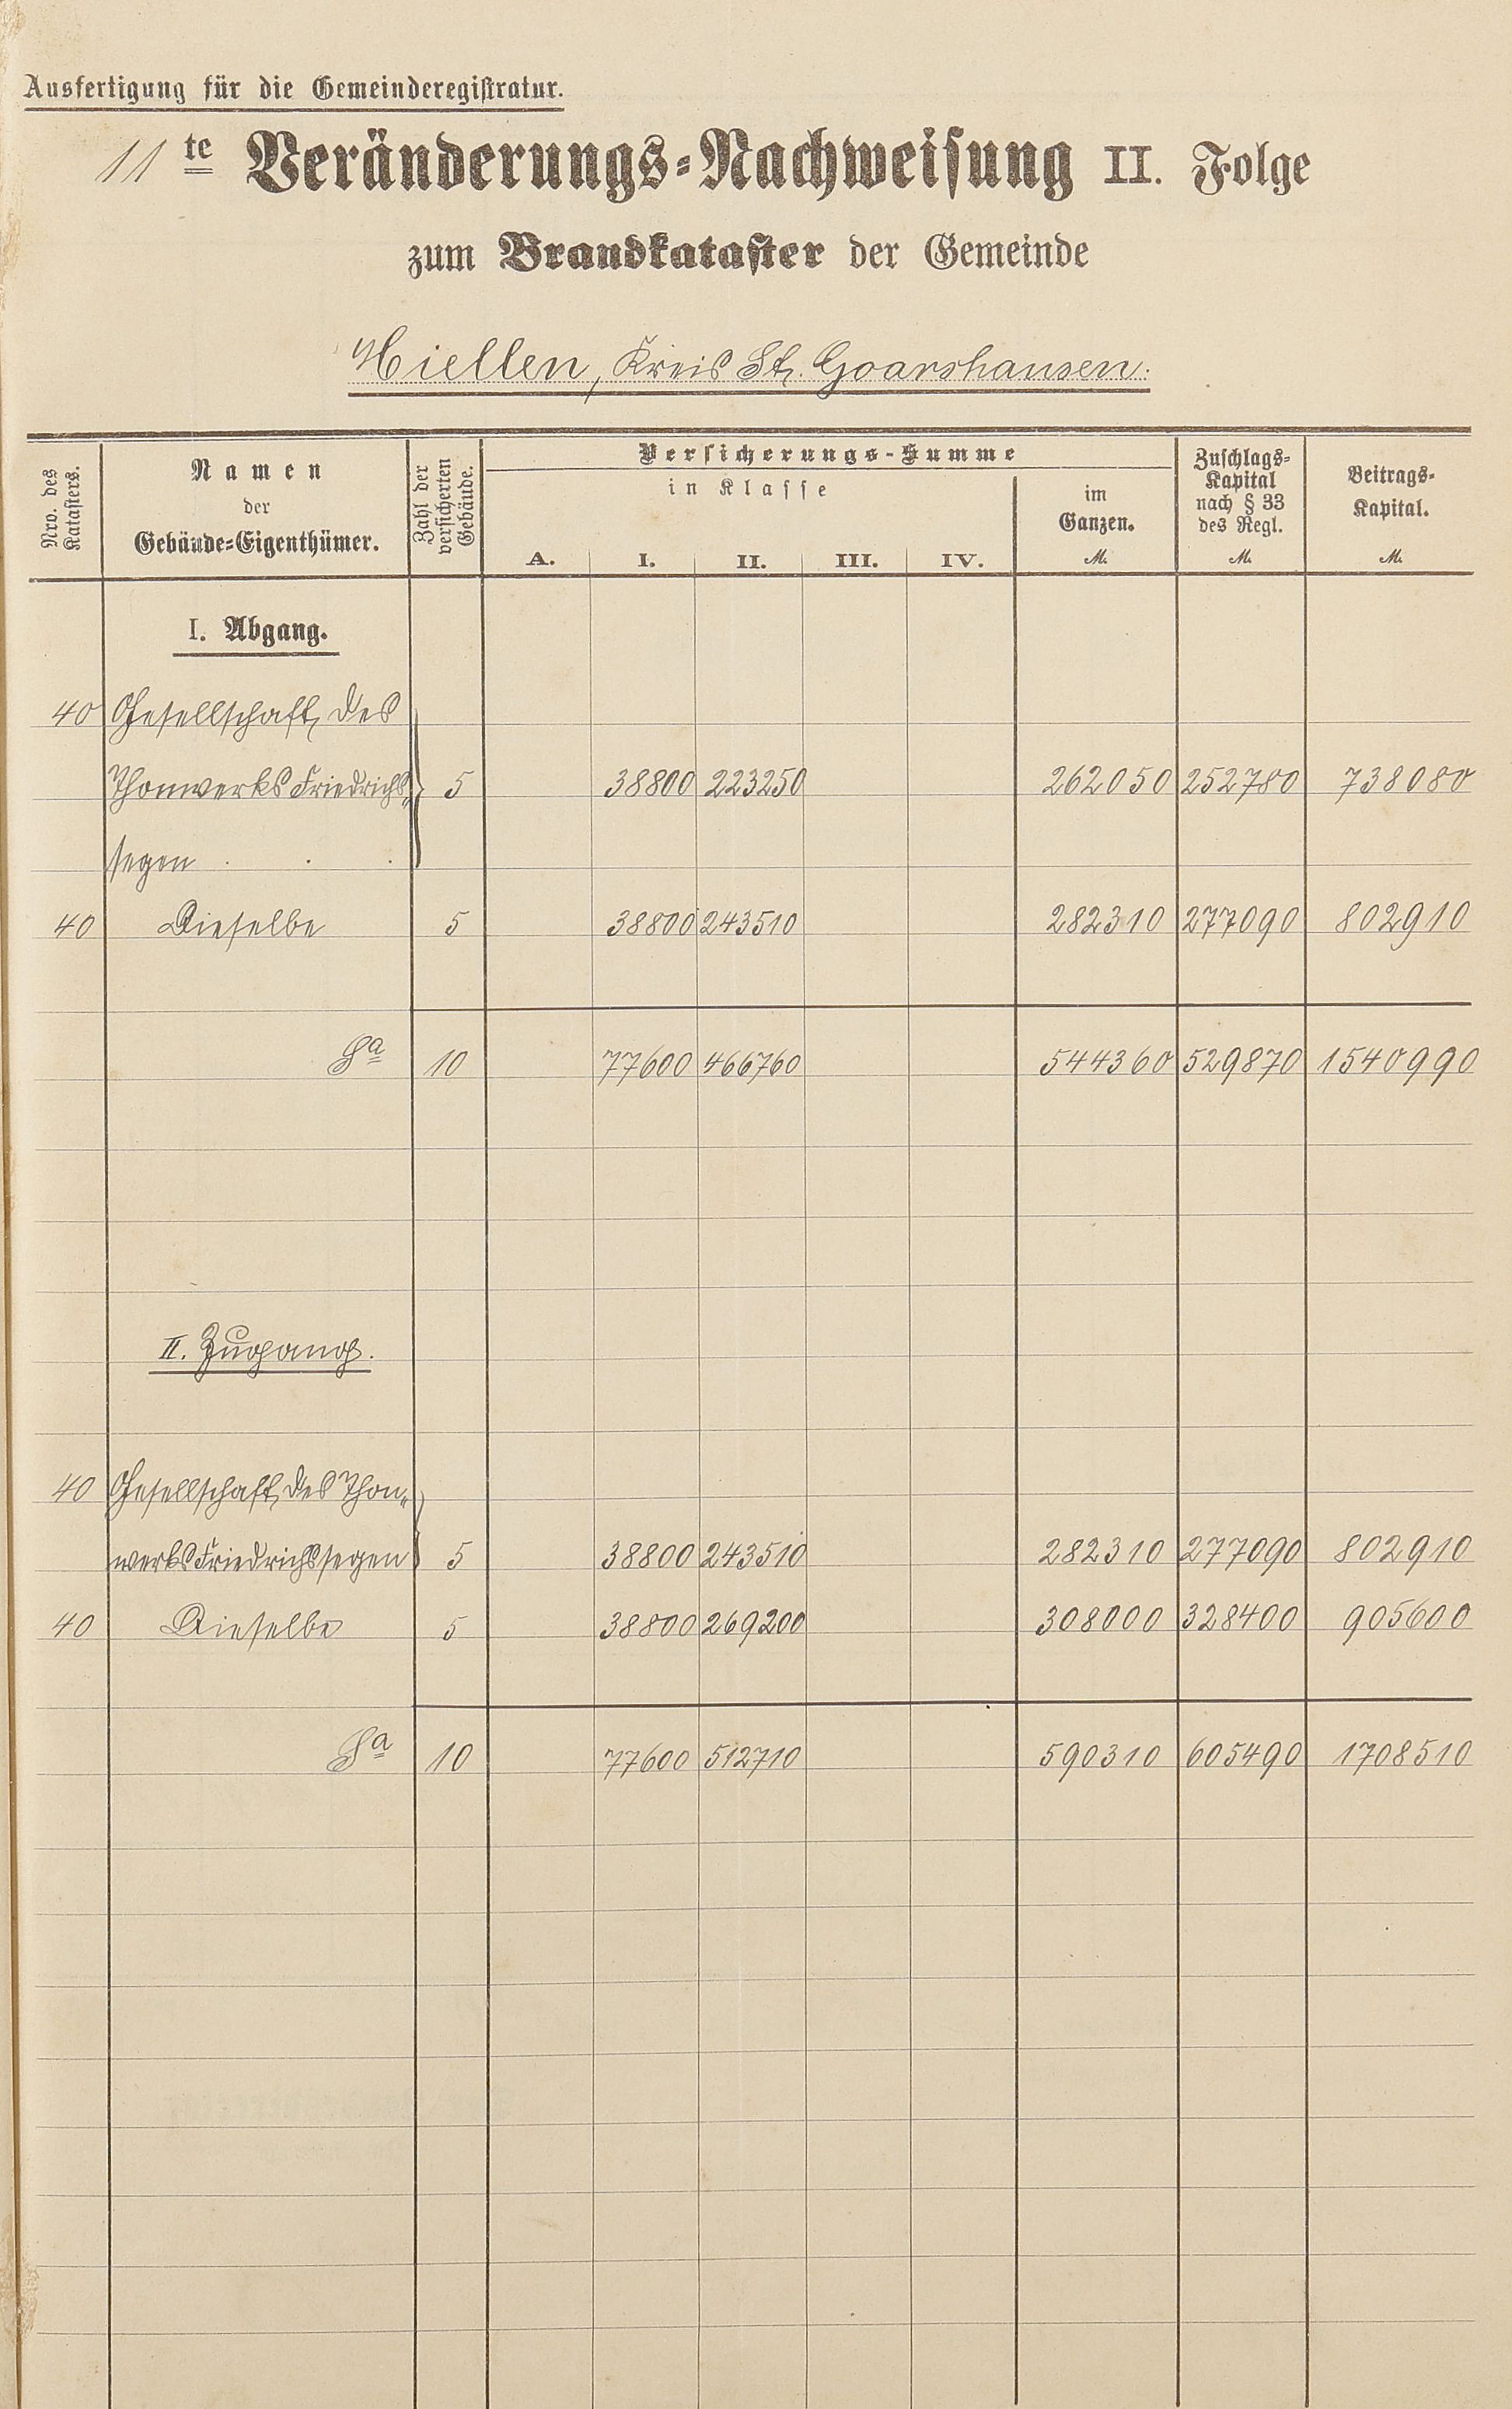 Ausfertigung für die Gemeinderegistratur.
11te Veränderungs-Nachweisung II. Folge
zum Brandkataster der Gemeinde
Miellen, Kreis St. Goarshausen.
Nro. des Katasters.
Namen
der
Gebäude-Eigenthümer.
Zahl der versicherten Gebäude.
Versicherungs-Summe
in Klasse
A. I. II. III. IV.
im
Ganzen.
M.
Zuschlags-
Kapital
nach § 33
des Regl.
M.
Beitrags-
Kapital.
M.
I. Abgang.
40 Gesellschaft des
Thonwerks Friedrichs- 5 38800 223250 262050 252780 738080
segen . . .
40 Dieselbe 5 38800 243510 282310 277090 802910
Sa 10 77600 466760 544360 529870 1540990
II. Zugang.
40 Gesellschaft des Thon-
werks Friedrichssegen 5 38800 243510 282310 277090 802910
40 Dieselbe 5 38800 269200 308000 328400 905600
Sa 10 77600 512710 590310 605490 1708510